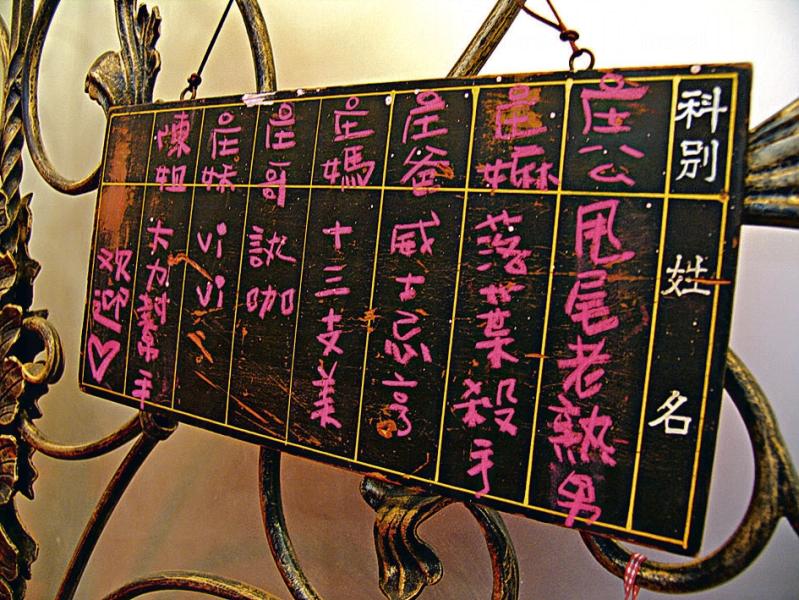 科別 姓名
庄公 甩尾老熟男
庄嫲 落葉殺手
庄爸 威士忌亨
庄媽 十三支美
庄哥 訧咖
庄妹 vivi
陳姐 大力對幫手
欢迎♡